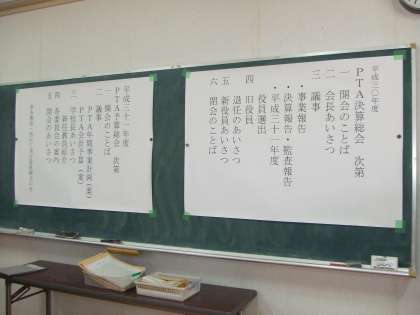 平成三〇年度
PTA決算総会 次第
一 開会のことば
二 会長あいさつ
三 議事
・事業報告
・決算報告・監査報告
・平成三十一年度
役員選出
四 旧役員
退任のあいさつ
五 新役員あいさつ
六 閉会のことば
平成三十一年度
PTA予算総会 次第
一 開会のことば
二 議事
PTA年間事業計画(案)
PTA会計予算(案)
三 学校長あいさつ
新任教員紹介
四 各委員会の案内
五 閉会のことば